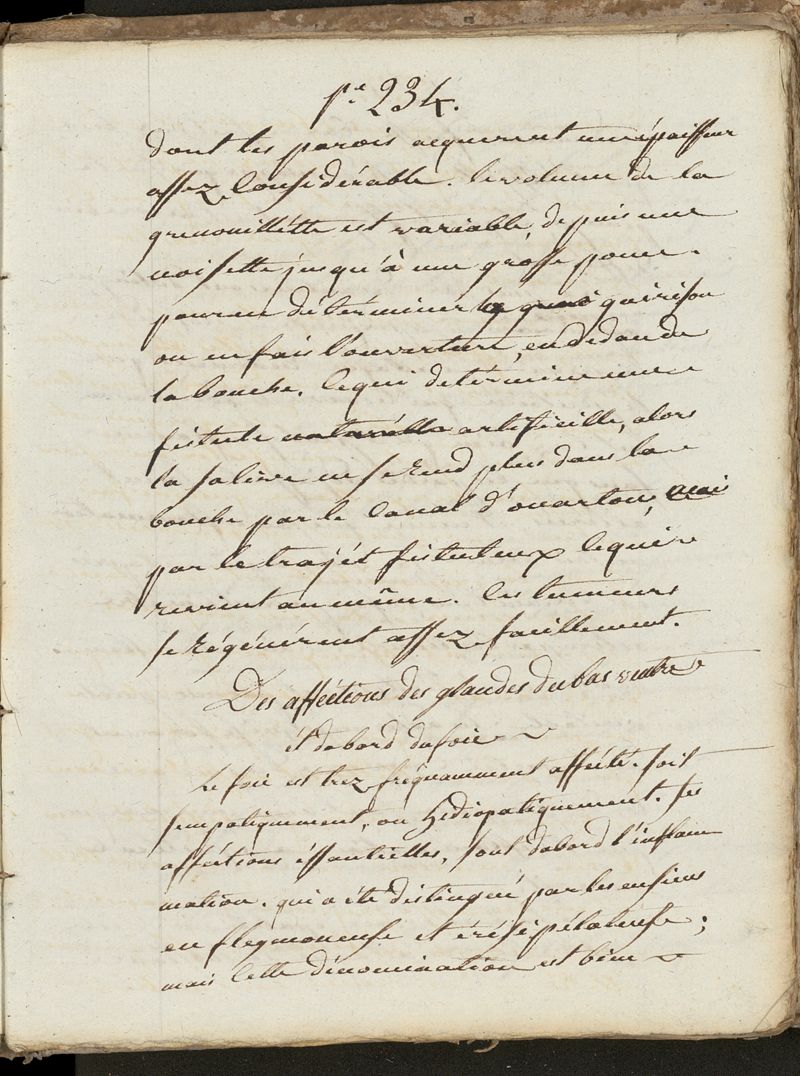 pe. 234.
dont les parois acquerent une épaisseur
assez Considérable. le volume de la
grenouillétte est variable, depuis une
noisette jusqu'à une grosse pome.
pour en détérminér la guérison
on en fais l'ouverture, en dedan de
la bouche. Ce qui detérmine une
fistule naturélle artificielle, alors
la salive ne se rend plus dans la
bouche par le Canal d'ouarton, mai
par le trajét fistuleux ce qui
revient au même. Ces tumeurs
se régénérent assez facillement.
Des afféctions des glandes du bas ventre
ét dabord du foie
Le foie est trez fréquamment affécté. soit
simpatiquement, ou hidiopatiquement. Ses
afféctions éssantielles, sont dabord l'inflam
mation. qui a été distingué par les ensiens
en flegmoneuse et érésipélateuse;
mais cette dénomination est bien